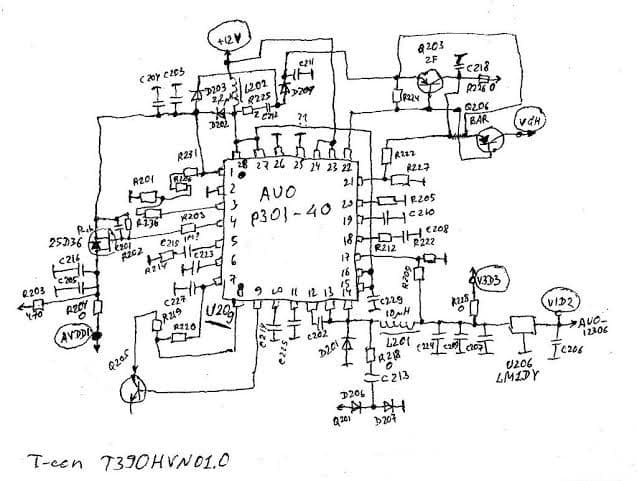 +12V
C204
C203
D203
L202
R225
C212
D204
C211
D202
Q203
2F
C218
R224
R226 0
Q206
BAR
VGH
R222
R227
R231
R206
R201
R236
R203
28 27 26 25 24 23 22
1
2
3
4
5
6
7
AUO
P301-40
21
20
19
18
17
16
15
R205
C210
C208
R212
R222
R209
8 9 10 11 12 13 14
U209
25D36
C201
R202
C216
C205
R203
470
R204
0
AVDD1
C215
R214
C223
C227
R219
R220
Q205
C225
C202
D201
C229
10µH
L201
R218
0
C213
D206
Q201
D207
V3D3
R228
0
C207
U206
LM1DY
V1D2
AUO-
12306
C206
T-con T390HVN01.0